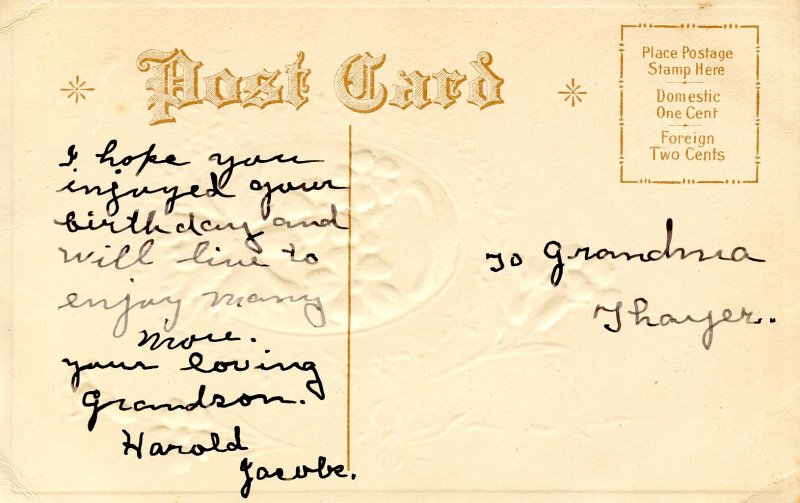 Post Card
Place Postage
Stamp Here
Domestic
One Cent
Foreign
Two Cents
I hope you
enjoyed your
birthday and
will live to
enjoy many
more.
your loving
Grandson.
Harold
Jacobs.
To Grandma
Thayer.